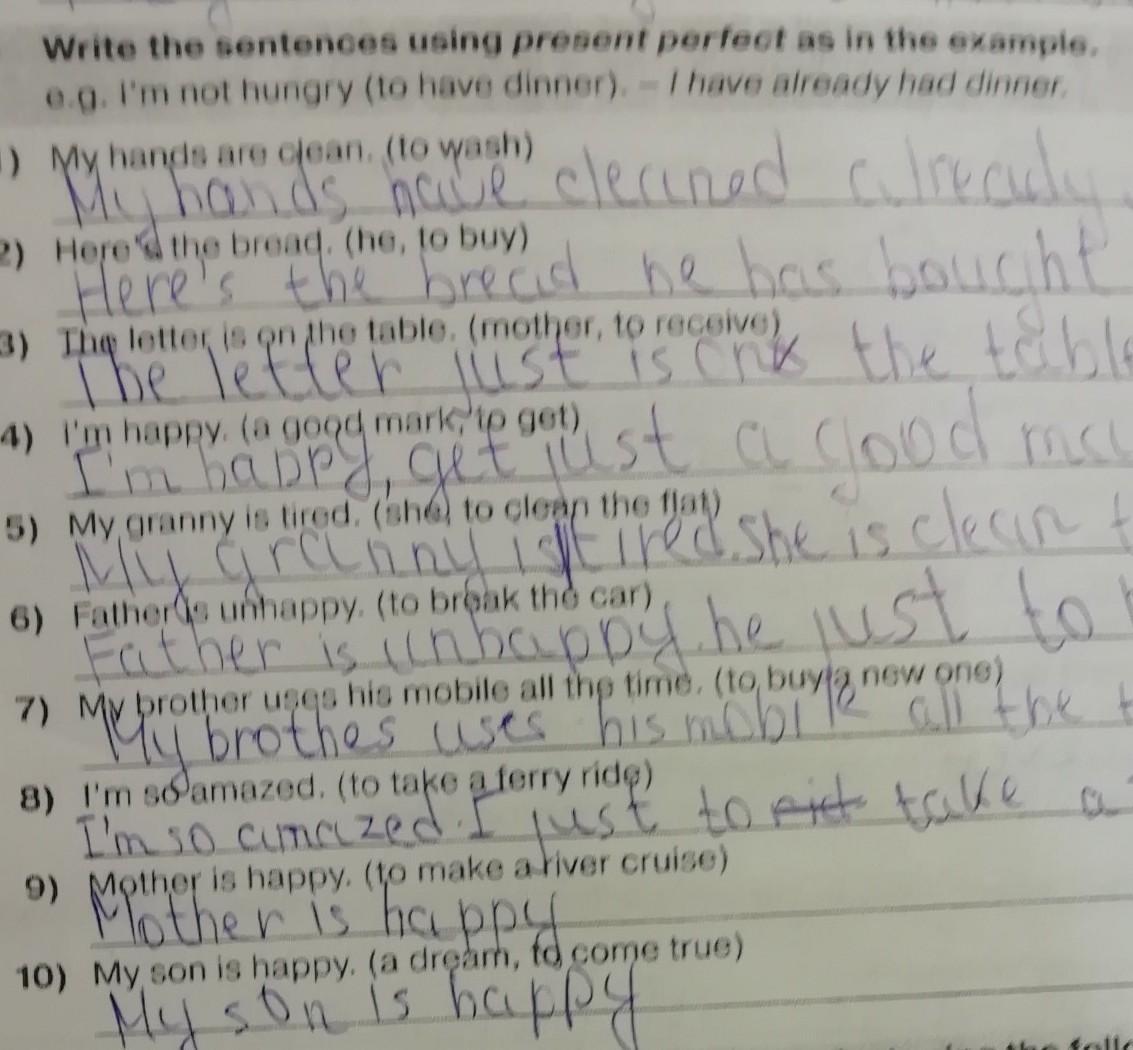 Write the sentences using present perfect as in the example.
e.g. I'm not hungry (to have dinner). – I have already had dinner.
) My hands are clean. (to wash)
My hands have cleaned already.
2) Here's the bread. (he, to buy)
Here's the bread he has bought
3) The letter is on the table. (mother, to receive)
The letter just is on the table
4) I'm happy. (a good mark, to get)
I'm happy, get just a good ma
5) My granny is tired. (she, to clean the flat)
My granny is tired. she is clean t
6) Father is unhappy. (to break the car)
Father is unhappy. he just to
7) My brother uses his mobile all the time. (to buy a new one)
My brothes uses his mobile all the t
8) I'm so amazed. (to take a ferry ride)
I'm so amazed. I just to take a
9) Mother is happy. (to make a river cruise)
Mother is happy
10) My son is happy. (a dream, to come true)
My son is happy